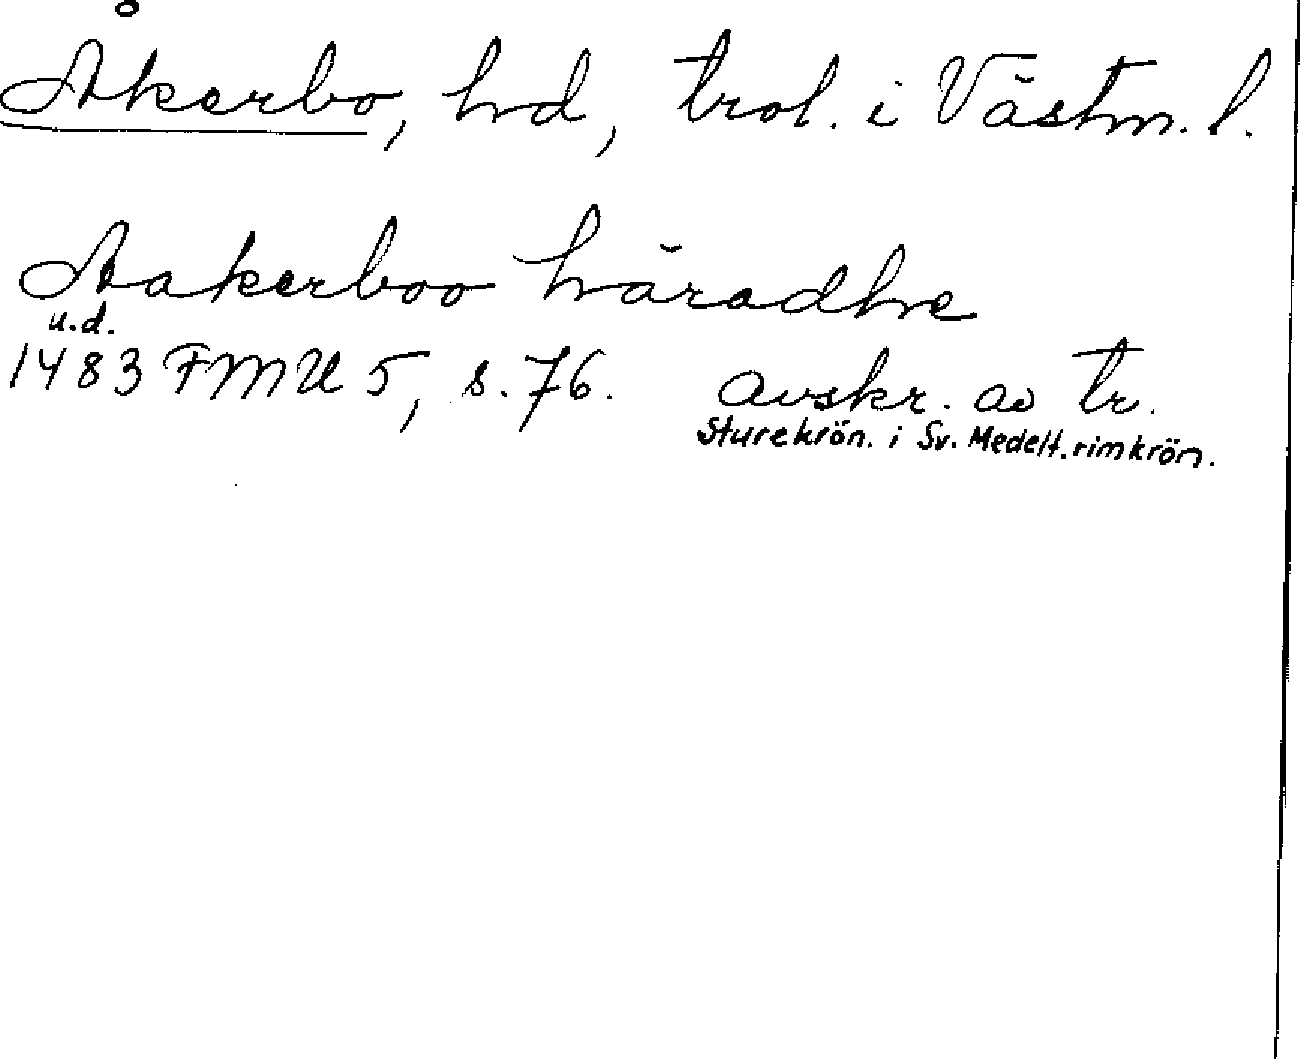 Åkerbo, hd, trol. i Västm. l.
Aakerboo häradhe
u.d.
1483 FMU 5, s. 76. avskr. av tr.
Sturekrön. i Sv. Medelt. rimkrön.